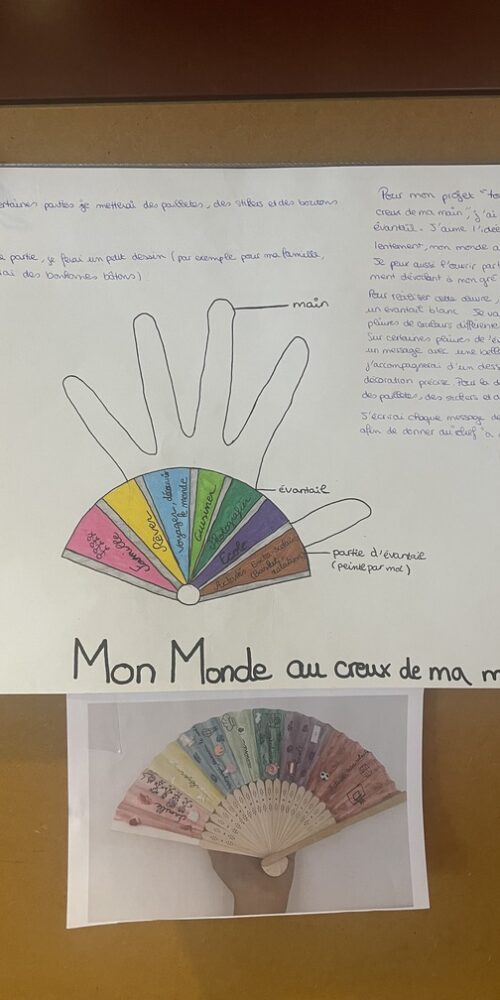 ertaines parties je metterai des paillettes, des stikers et des boutons
partie, je ferai un petit dessin (par exemple pour ma famille,
ai des bonhomes bâtons)
Pour mon projet "
creux de ma main", j'ai
évantail. J'aime l'idée
lentement, mon monde a
Je peux aussi l'ouvrir part
ment dévoilant à mon gré
Pour réaliser cette œuvre,
un évantail blanc. Je va
pliures de couleurs différente
Sur certaines pliures de l'é
un message avec une bell
j'accompagnerai d'un des
décoration précise. Pour la d
des paillettes, des stickers et d
J'écrirai chaque message de
afin de donner au chef
main
évantail
partie d'évantail
(peinte par moi)
Famille
Rêver
voyager, découvrir
le monde
Cuisiner
Photographier
École
Activités Extra-Scolaire
(Basket,
natation)
Mon Monde au creux de ma m